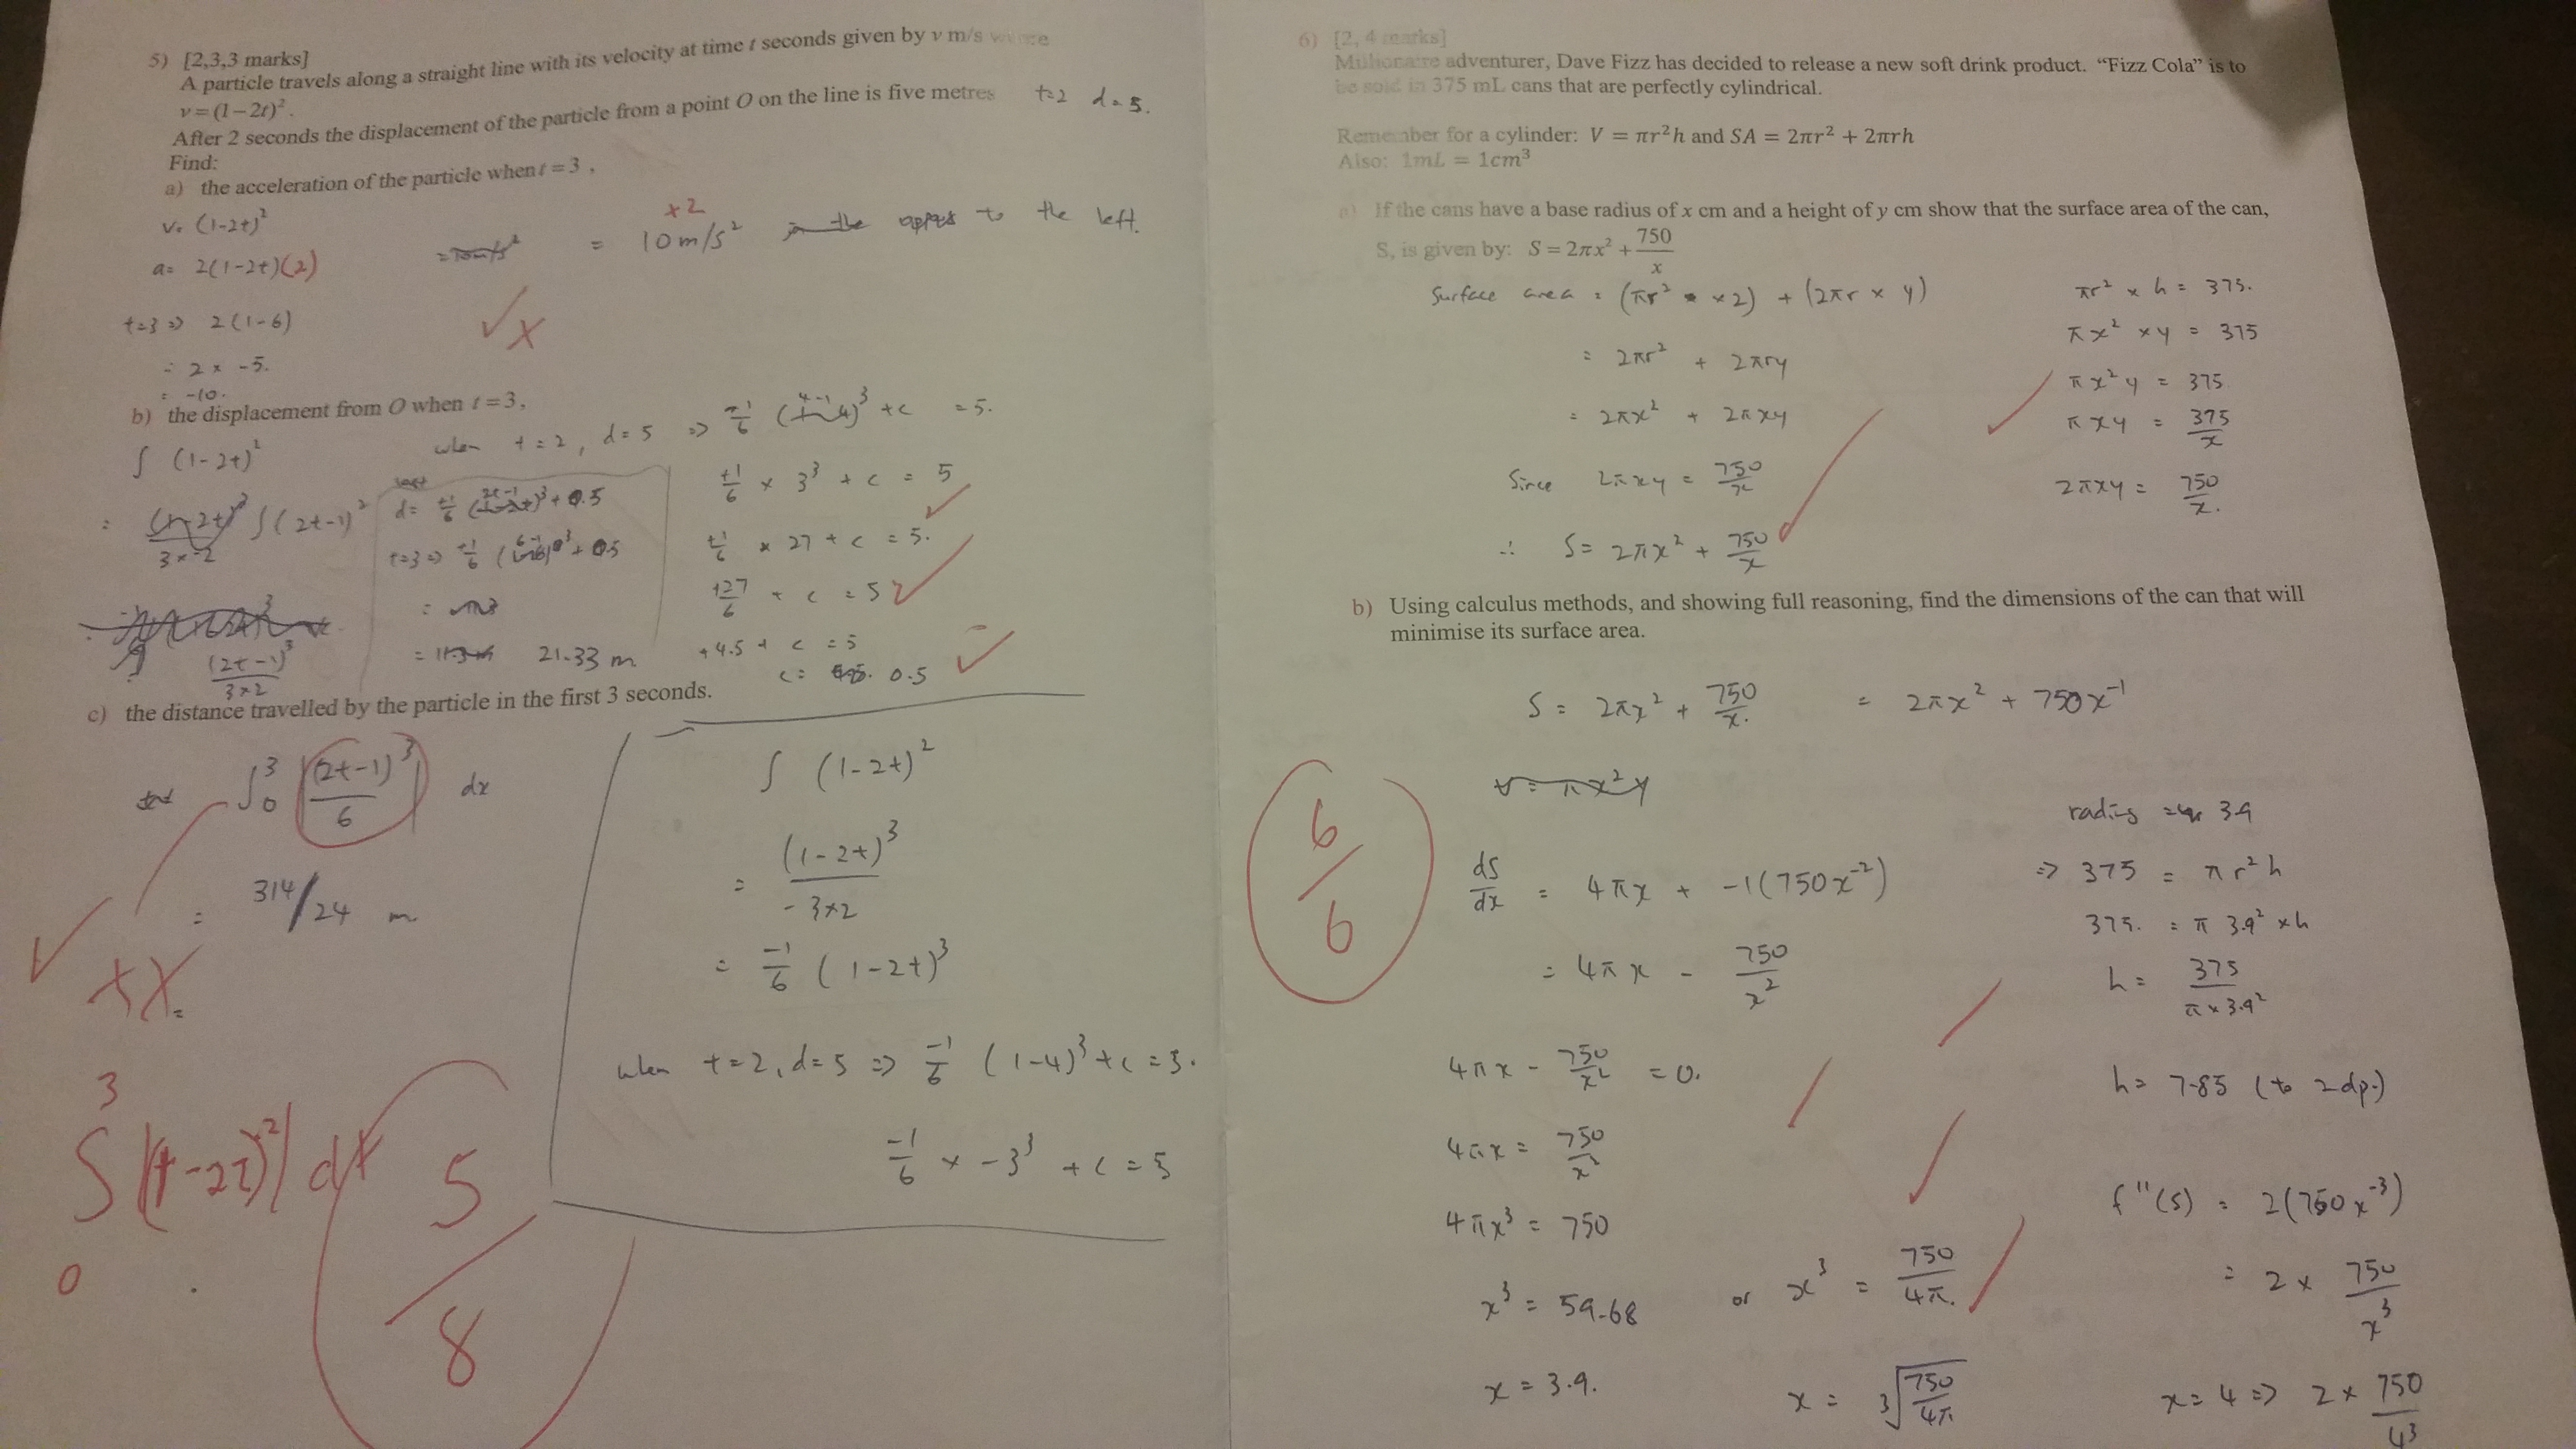 5) [2,3,3 marks]
A particle travels along a straight line with its velocity at time t seconds given by v m/s where
v = (1 – 2t)².
After 2 seconds the displacement of the particle from a point O on the line is five metres t=2 d=5.
Find:
a) the acceleration of the particle when t = 3,
v= (1-2t)²
a= 2(1-2t)(2)
= 10 m/s² to the left.
×2
t=3 => 2(1-6)
= 2 × -5.
= -10.
b) the displacement from O when t = 3,
∫ (1-2t)²
∫(2t-1)²
(2t-1)³
3×2
when t=2, d=5 =>
+c = 5.
+1/6 × 3³ + c = 5
+1/6 × 27 + c = 5.
+27/6 + c = 5
+4.5 + c = 5
c= 0.5
21.33 m
c) the distance travelled by the particle in the first 3 seconds.
∫₀³ |(2t-1)³/6| dx
= 314/24 m
∫₀³ |(1-2t)²| dt
5/8
∫ (1-2t)²
= (1-2t)³
-3×2
= -1/6 (1-2t)³
when t=2, d=5 => -1/6 (1-4)³ + c = 5.
-1/6 × -3³ + c = 5
6) [2, 4 marks]
Millionaire adventurer, Dave Fizz has decided to release a new soft drink product. “Fizz Cola” is to
be sold in 375 mL cans that are perfectly cylindrical.
Remember for a cylinder: V = πr²h and SA = 2πr² + 2πrh
Also: 1mL = 1cm³
a) If the cans have a base radius of x cm and a height of y cm show that the surface area of the can,
S, is given by: S = 2πx² + 750/x
Surface area = (πr² × 2) + (2πr × y)
= 2πr² + 2πry
= 2πx² + 2πxy
Since 2πxy = 750/x
∴ S= 2πx² + 750/x
πr² × h = 375.
πx² × y = 375
πx²y = 375
πxy = 375/x
2πxy = 750/x.
b) Using calculus methods, and showing full reasoning, find the dimensions of the can that will
minimise its surface area.
S = 2πx² + 750/x. = 2πx² + 750x⁻¹
V = πx²y
6/6
dS/dx = 4πx + -1(750x⁻²)
= 4πx - 750/x²
4πx - 750/x² = 0.
4πx = 750/x²
4πx³ = 750
x³ = 59.68 or x³ = 750/4π.
x = 3.9. x = ³√750/4π
radius = 3.9
=> 375 = πr²h
375. = π 3.9² × h
h= 375/π × 3.9²
h= 7.85 (to 2dp.)
f''(s) = 2(750x⁻³)
= 2 × 750/x³
x = 4 => 2 × 750/4³